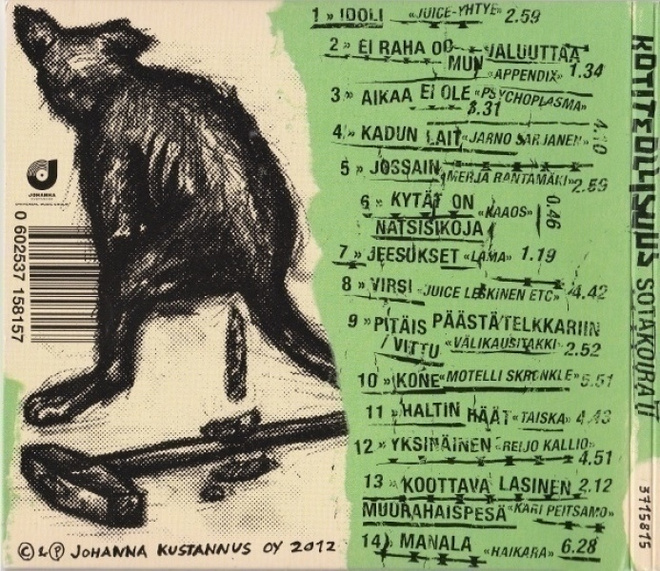 1 » IDOLI «JUICE-YHTYE» 2.59
2 » EI RAHA OO MUN VALUUTTAA «APPENDIX» 1.34
3 » AIKAA EI OLE «PSYCHOPLASMA» 8.31
4 » KADUN LAIT «JARNO SARJANEN» 4.10
5 » JOSSAIN «MERJA RANTAMÄKI» 2.59
6 » KYTÄT ON «KAAOS» 0.46
NATSISIKOJA
7 » JEESUKSET «LAMA» 1.19
8 » VIRSI «JUICE LESKINEN ETC» 4.42
9 » PITÄIS PÄÄSTÄ TELKKARIIN
VITTU «VÄLIKAUSITAKKI» 2.52
10 » KONE «MOTELLI SKRONKLE» 5.51
11 » HALTIN HÄÄT «TAISKA» 4.43
12 » YKSINÄINEN «REIJO KALLIO»
4.51
13 » KOOTTAVA LASINEN 2.12
MUURAHAISPESÄ «KARI PEITSAMO»
14 » MANALA «HAIKARA» 6.28
KOTITEOLLISUUS SOTAKOIRA II
3715815
JOHANNA
0 602537 158157
© & ℗ JOHANNA KUSTANNUS OY 2012